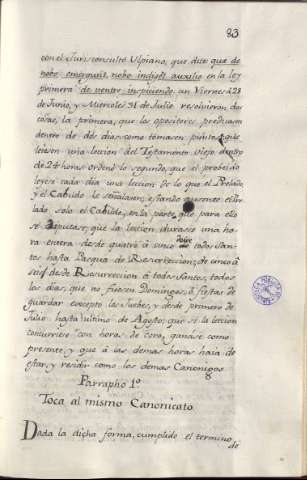 83
con el Jurisconsulto Ulpiano, que dice que de
en la ley
primera de ventre inspiciendo. un Viernes à 28
de Junio, y Miercoles 31 de Julio resolvieron dos
cosas, la primera, que los opositores predicasen
dentro de dos dias como tomasen puntos, y que
leiesen una leccion del Testamento viejo dentro
de 24 horas ordenó lo segundo, que el probeido
leyese cada dia una leccion de lo que el Prelado
y el Cabildo le señalaren, estando ausente el Pre
lado solo el Cabildo, en la parte que para ello
se diputase; que la leccion durasse una ho
ra entera desde quatro à cinco desde todos San
tos hasta Pasqua de Resurreccion; de cinco à
seis desde Resurreccion à todos Santos, todos
los dias, que no fuesen Domingos, ò fiestas de
guardar excepto los Jueves, y desde primero de
Julio hasta ultimo de Agosto; que si la leccion
concurriere con horas de Coro, ganase como
presente y que à las demas horas haia de
estar, y residir como los demas Canonigos
Parrapho 1º
Toca al mismo Canonicato
Dada la dicha forma, cumplido el termino
de